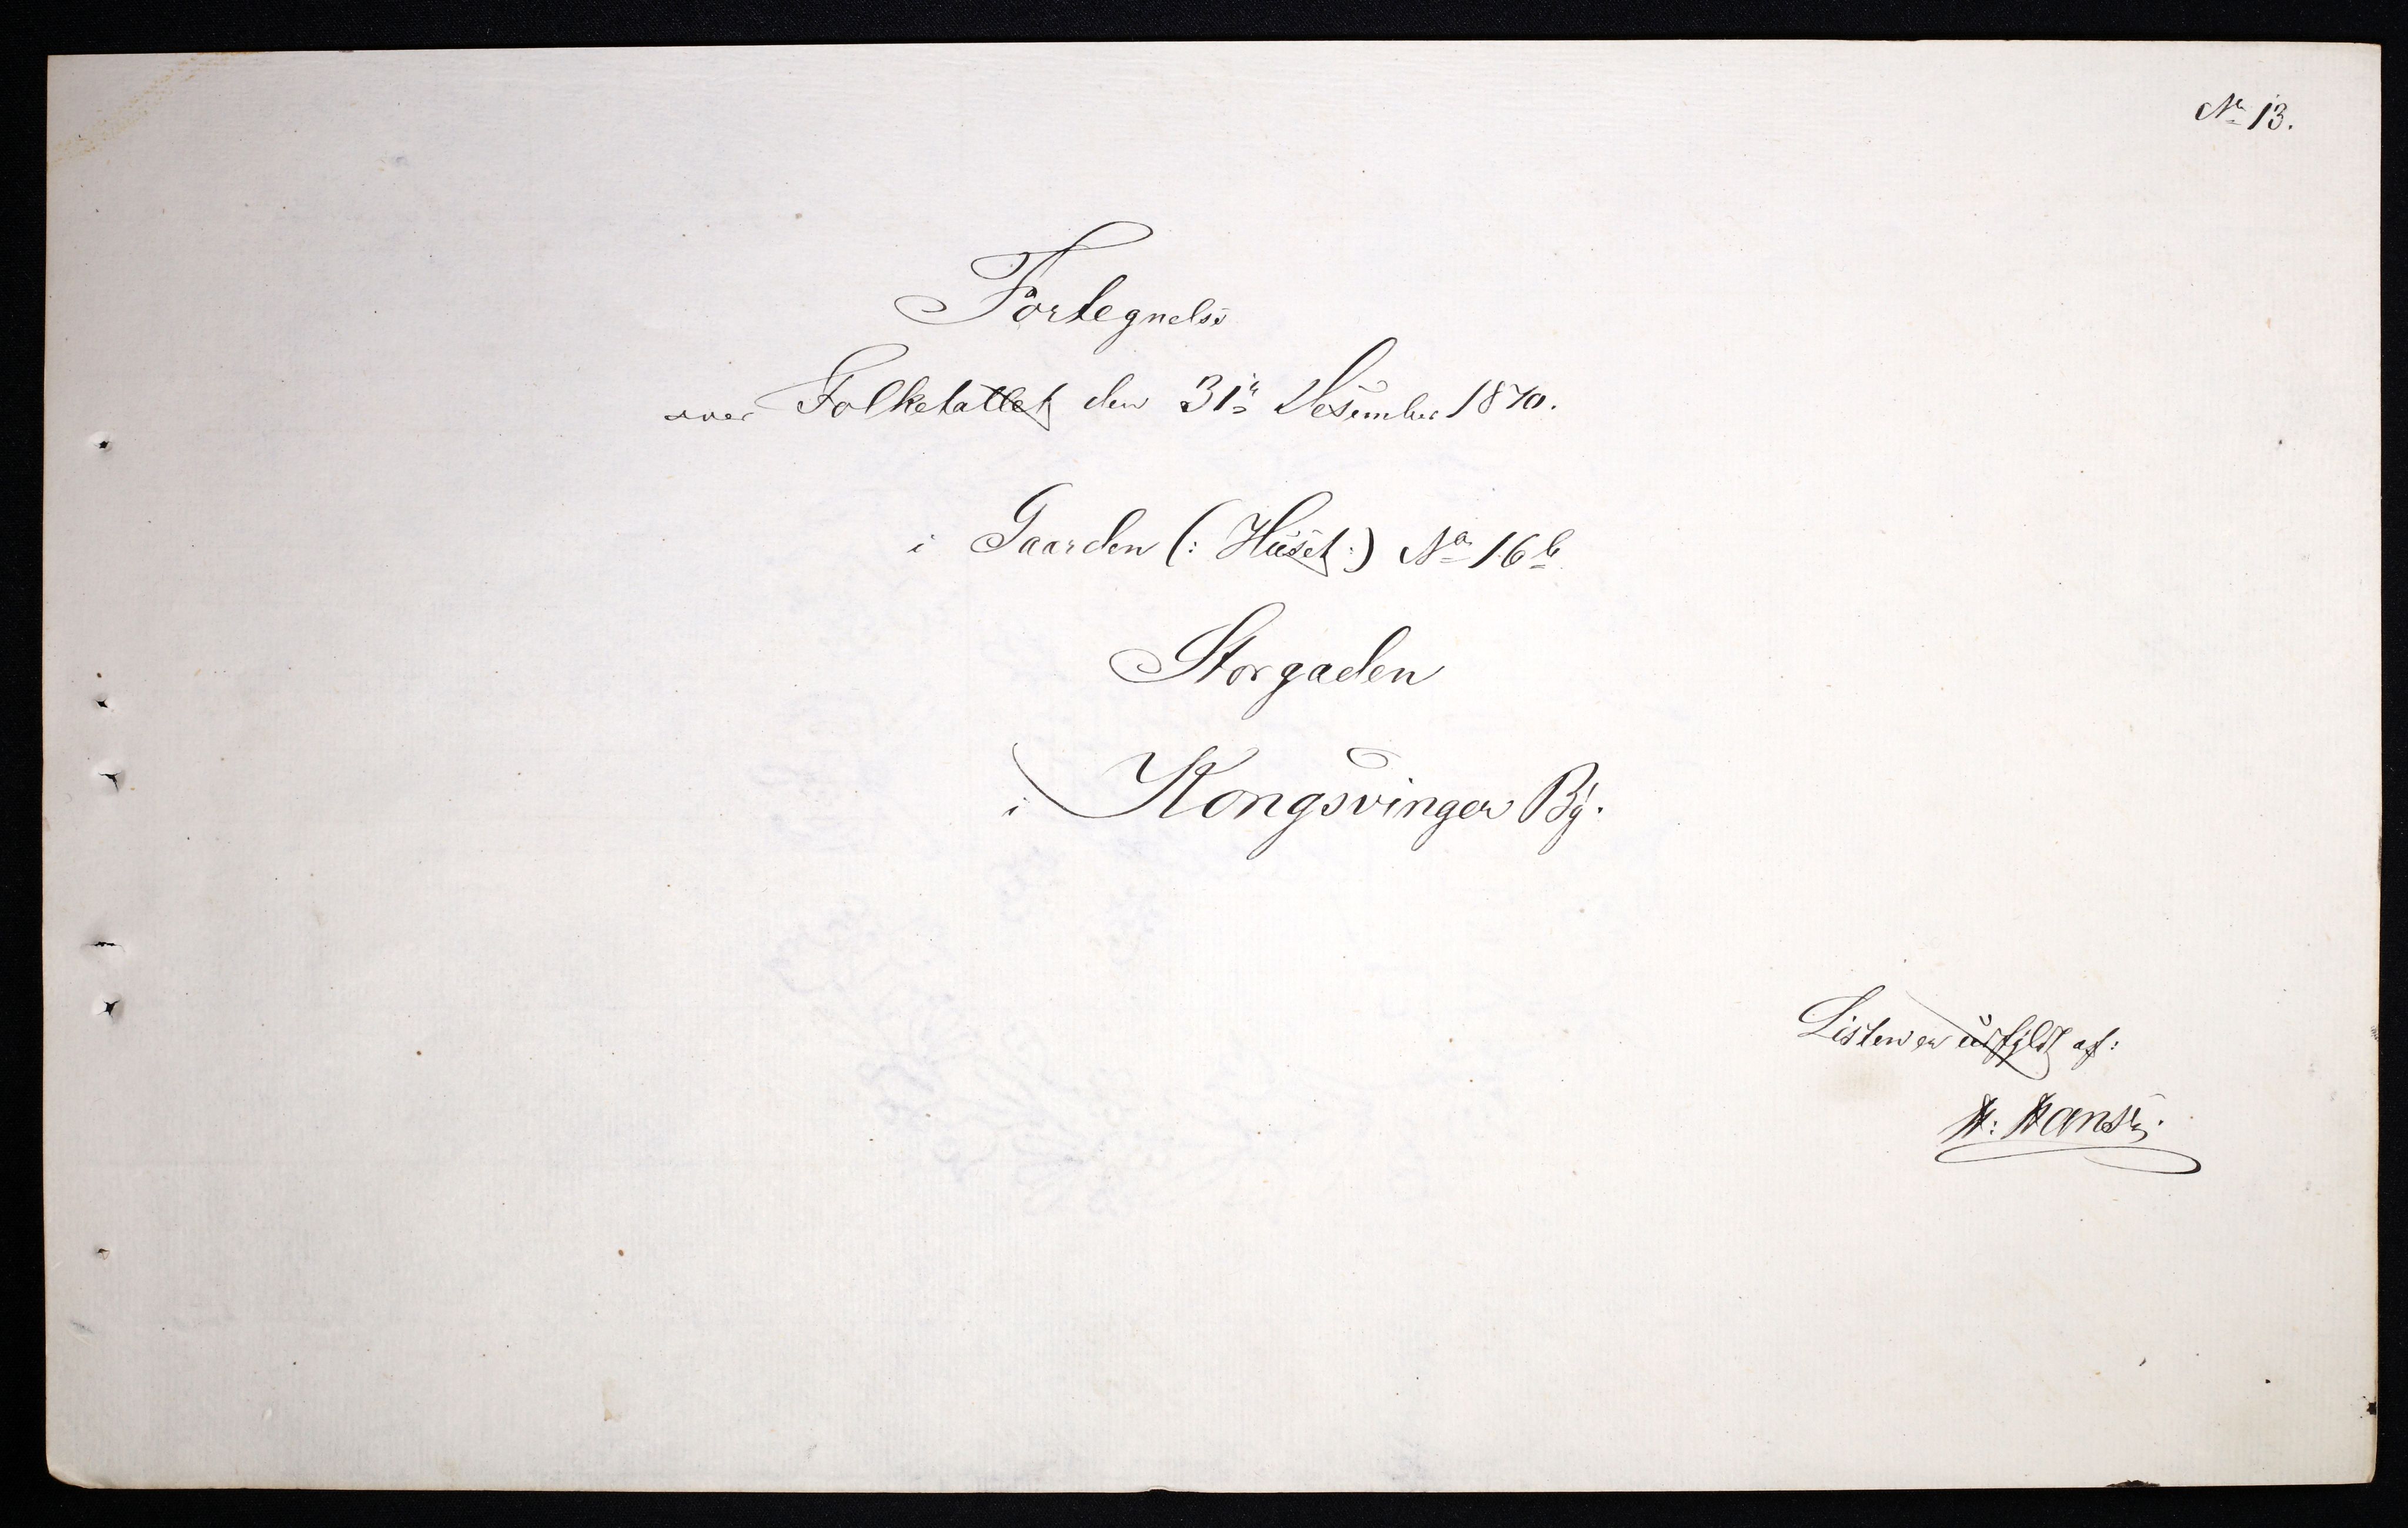 No 13.
Fortegnelse
over Folketallet den 31te Desember 1870.
i Gaarden (: Huset :) No 16b
Storgaden
i Kongsvinger By.
Listen er udfyldt af:
H. Hansen.